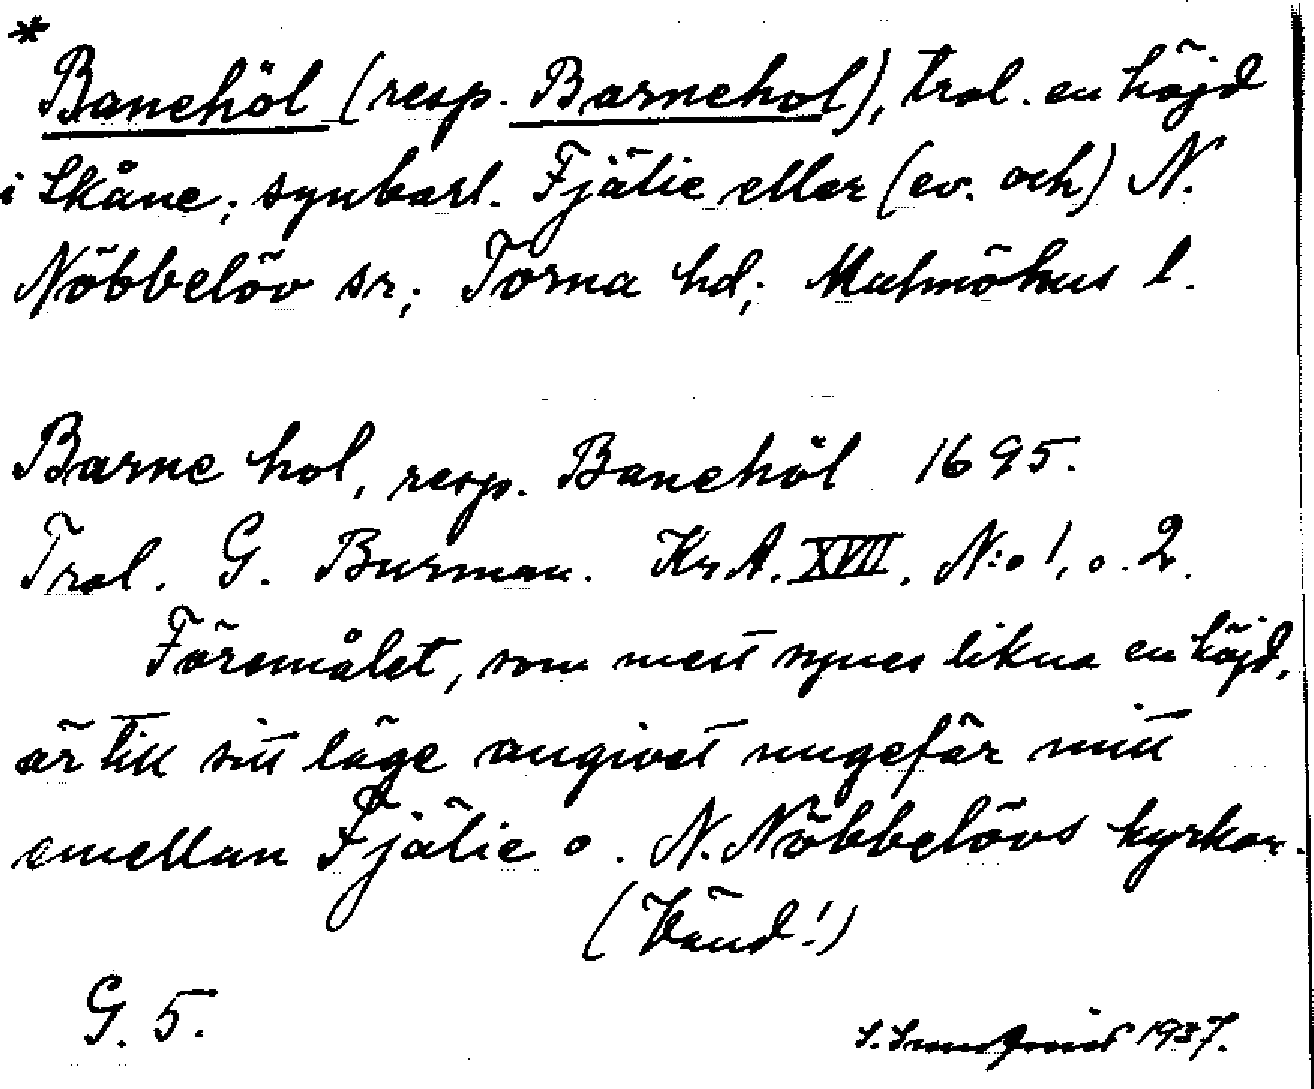 *
Banehöl (resp. Barnehol), trol. en höjd
i Skåne; synbarl. Fjälie eller (ev. och) N.
Nöbbelöv sn; Torna hd; Malmöhus l.
Barne hol, resp. Banehöl 1695.
Trol. G. Burman. Kr.A. XVII. N:o 1, o. 2.
Föremålet, som mest synes likna en höjd,
är till sitt läge angivet ungefär mitt
emellan Fjälie o. N. Nöbbelövs kyrkor.
(Vänd!)
G. 5.
1937.